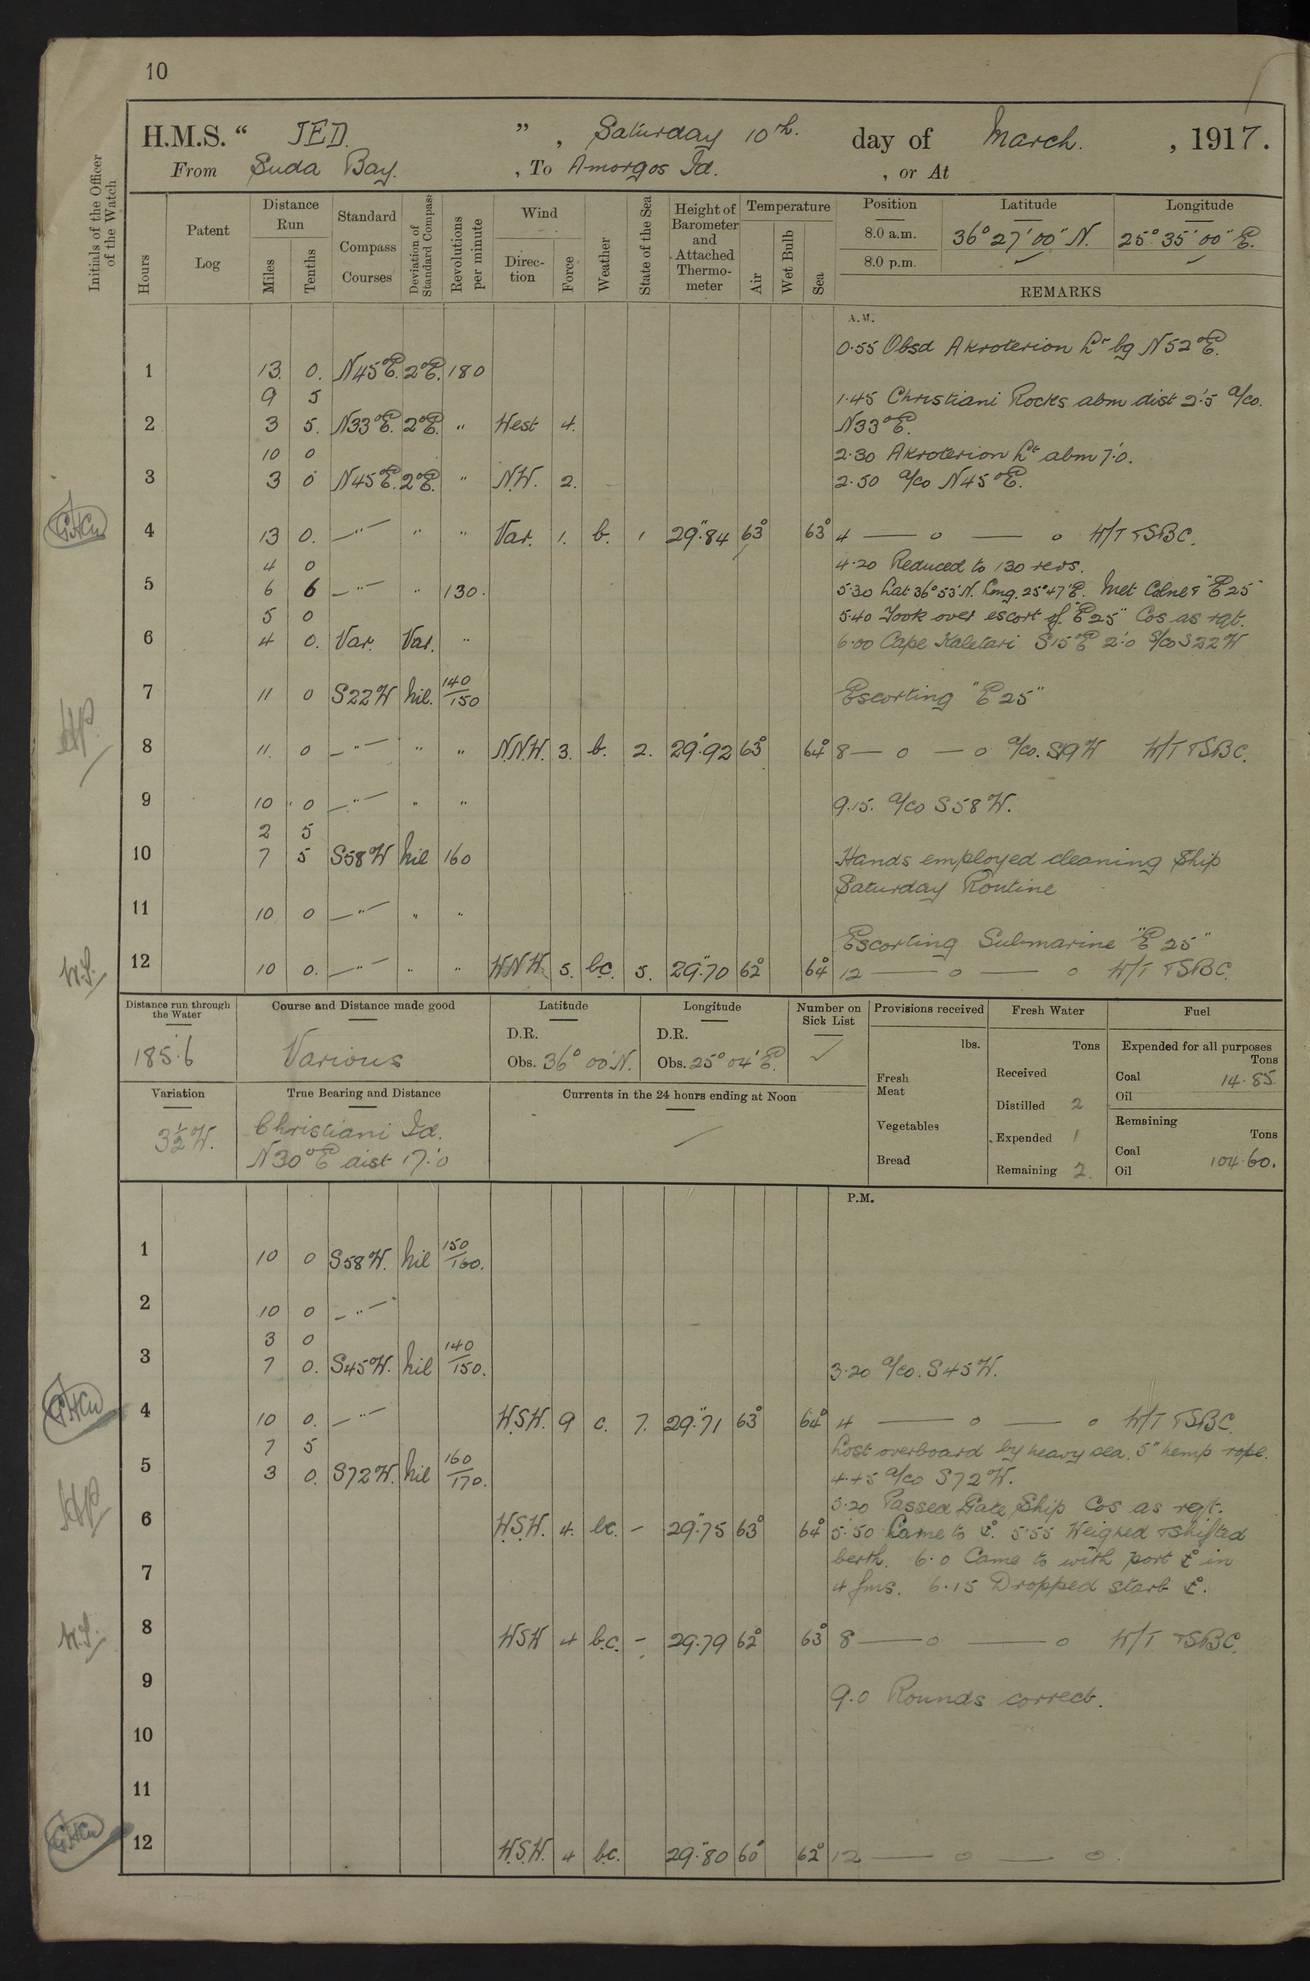 10
H.M.S. " JED. ", Saturday 10th. day of March. , 1917.
From Suda Bay. , To Amorgos Id. , or At
Initials of the Officer of the Watch
Hours
Patent Log
Distance Run
Miles Tenths
Standard Compass Courses
Deviation of Standard Compass
Revolutions per minute
Wind
Direction Force
Weather
State of the Sea
Height of Barometer and Attached Thermometer
Temperature
Air Wet Bulb Sea
Position Latitude Longitude
8.0 a.m. 36° 27' 00" N. 25° 35' 00" E.
8.0 p.m.
REMARKS
A.M.
0.55 Obsd Akroterion Lt bg N52°E.
1 13. 0. N45°E. 2°E. 180
9 5 1.45 Christiani Rocks abm dist 2'.5 a/co.
2 3 5. N33°E. 2°E. " West 4. N33°E.
10 0 2.30 Akroterion Lt abm 7'.0.
3 3 0 N45°E. 2°E. " N.W. 2. 2.50 a/co N45°E.
4 13 0. —"— " " Var. 1. b. 1 29".84 63° 63° 4 — o — o W/T TSBC.
4 0 4.20 Reduced to 130 revs.
5 6 6 —"— " 130. 5.30 Lat 36°53'N. Long. 25°47'E. Met "E25"
5 0 5.40 Took over escort of "E25" Cos as rqt.
6 4 0. Var. Var. " 6.00 Cape Kaletari S15°E 2'.0 S/Co S22W
7 11 0 S22W Nil. 140/150 Escorting "E25"
8 11. 0 —"— " " N.N.W. 3. b. 2. 29".92 63° 64° 8 — o — o a/co. S19W W/T TSBC.
9 10 0 —"— " " 9.15. a/co S58W.
2 5
10 7 5 S58W Nil 160 Hands employed cleaning Ship
Saturday Routine
11 10 0 —"— " "
Escorting Submarine "E25"
12 10 0. —"— " " W.N.W. 5. b.c. 5. 29".70 62° 64° 12 — o — o W/T TSBC.
Distance run through the Water
185.6
Course and Distance made good
Various
Latitude
D.R.
Obs. 36° 00' N.
Longitude
D.R.
Obs. 25° 04' E.
Number on Sick List
✓
Variation
3½ W.
True Bearing and Distance
Christiani Id.
N30°E dist 17'.0
Currents in the 24 hours ending at Noon
Provisions received
lbs.
Fresh Meat
Vegetables
Bread
Fresh Water
Tons
Received
Distilled 2
Expended 1
Remaining 2.
Fuel
Expended for all purposes
Tons
Coal 14.85
Oil
Remaining
Tons
Coal 104.60.
Oil
P.M.
1 10 0 S58W. Nil 150/160.
2 10 0 —"—
3 0
3 7 0. S45W. Nil 140/150. 3.20 a/co. S45W.
4 10 0. —"— W.S.W. 9 c. 7. 29".71 63° 64° 4 — o — o W/T TSBC.
7 5 Lost overboard by heavy sea, 5" hemp rope.
5 3 0. S72W. Nil 160/170. 4.45 a/co S72W.
5.20 Passed Gate Ship Cos as reqt.
6 W.S.W. 4. bc. – 29".75 63° 64° 5.50 Came to ⚓. 5.55 Weighed & shifted
berth. 6.0 Came to with port ⚓ in
7 4 fms. 6.15 Dropped starb ⚓.
8 W.S.W 4 b.c. – 29.79 62° 63° 8 — o — o W/T TSBC.
9 9.0 Rounds correct.
10
11
12 W.S.W. 4 b.c. 29".80 60° 62° 12 — o — o.